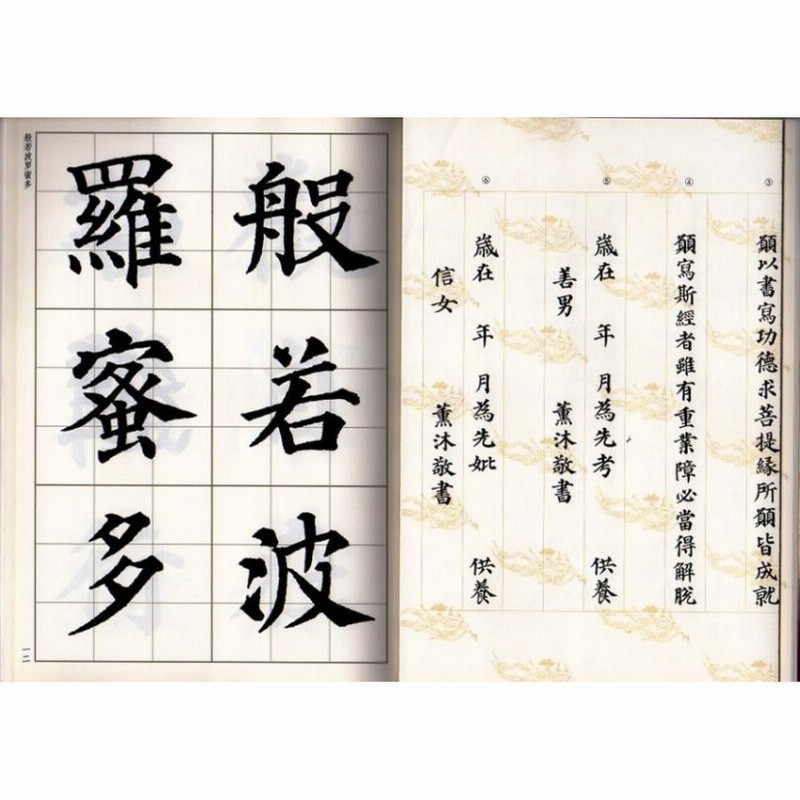 ③
願以書寫功德求菩提緣所願皆成就
④
願寫斯經者雖有重業障必當得解脫
⑤
歲在 年 月為先考 供養
善男 薰沐敬書
⑥
歲在 年 月為先妣 供養
信女 薰沐敬書
般若波
羅蜜多
般若波罗蜜多
一二